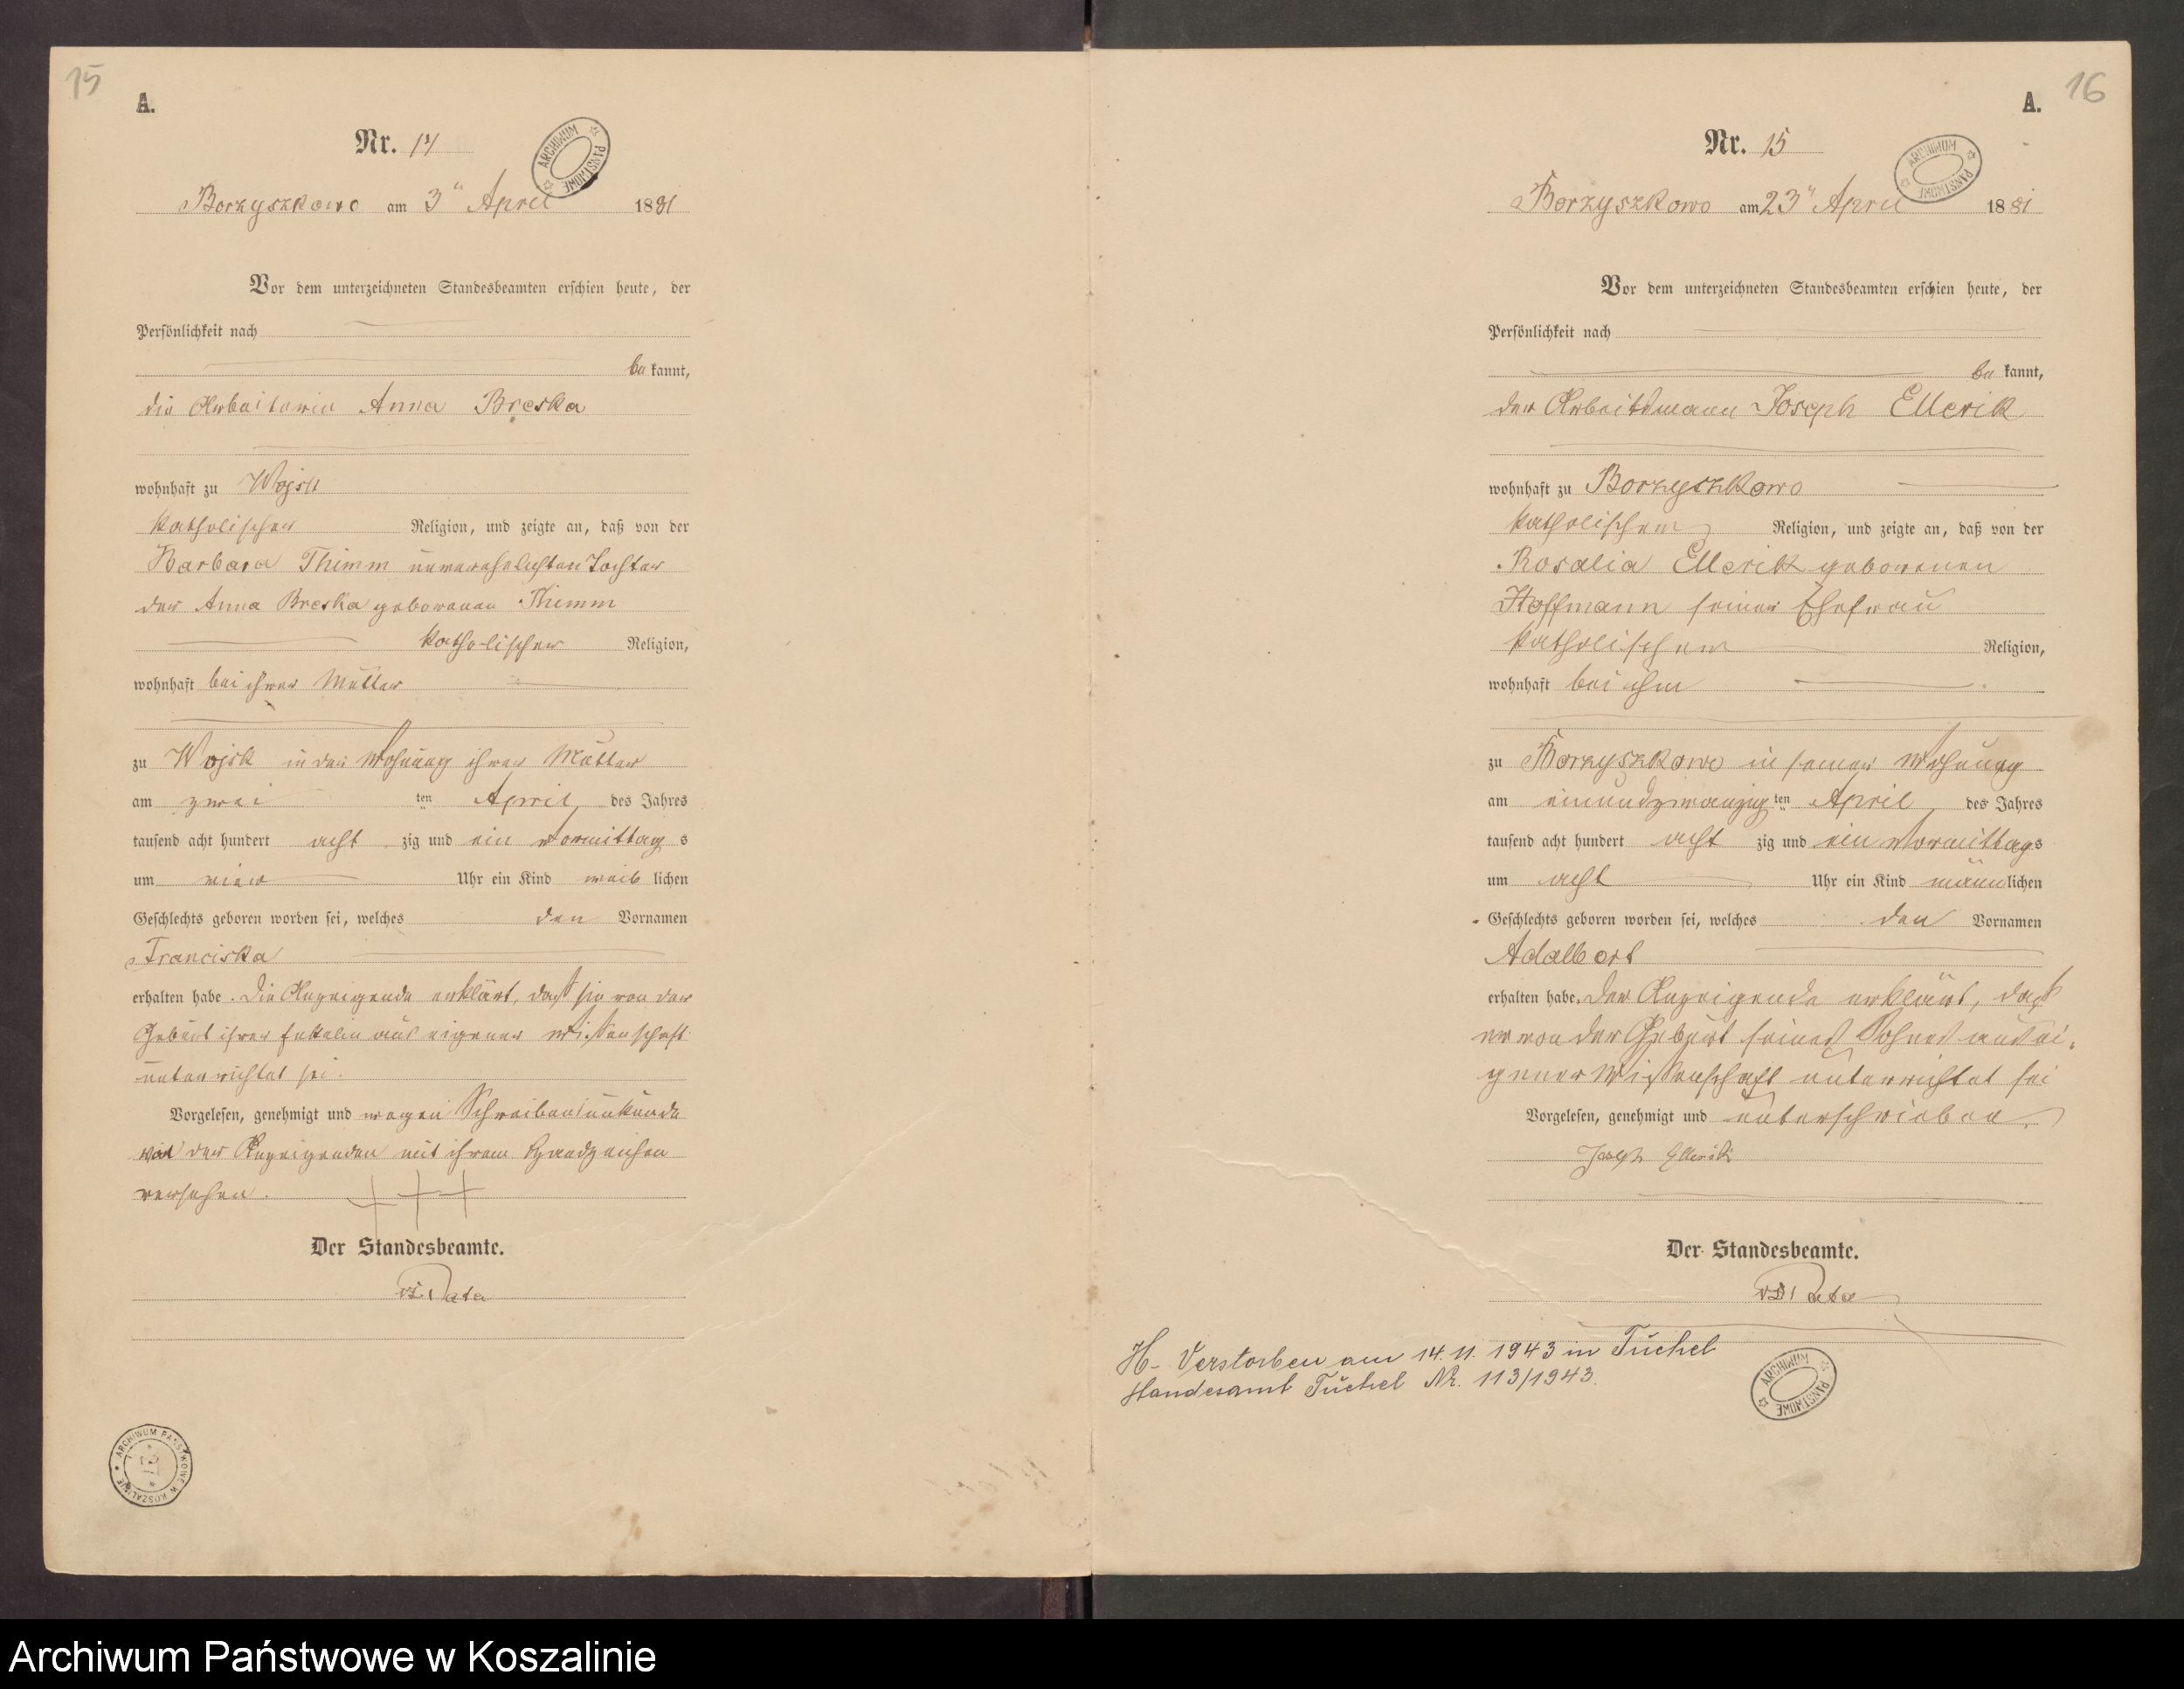 15
A.
Nr. 14
ARCHIWUM PAŃSTWOWE
Borzyszkowo am 3ten April 1881
Vor dem unterzeichneten Standesbeamten erschien heute, der
Persönlichkeit nach
be kannt,
die Arbeiterin Anna Breska
wohnhaft zu Wojsk
katholischer Religion, und zeigte an, daß von der
Barbara Thimm unverehelichten Tochter
der Anna Breska geborenen Thimm
katholischer Religion,
wohnhaft bei ihrer Mutter
zu Wojsk in der Wohnung ihrer Mutter
am zwei ten April, des Jahres
tausend acht hundert acht zig und ein Vormittag s
um vier Uhr ein Kind weib lichen
Geschlechts geboren worden sei, welches den Vornamen
Franciska
erhalten habe. Die Anzeigende erklärt, daß sie von der
Geburt ihrer Enkelin aus eigener Wissenschaft
unterrichtet sei.
Vorgelesen, genehmigt und wegen Schreibensunkunde
von der Anzeigenden mit ihrem Handzeichen
versehen. +++
Der Standesbeamte.
ARCHIWUM PAŃSTWOWE W KOSZALINIE
16
A.
Nr. 15
ARCHIWUM PAŃSTWOWE
Borzyszkowo am 23ten April 1881
Vor dem unterzeichneten Standesbeamten erschien heute, der
Persönlichkeit nach
be kannt,
der Arbeitsmann Joseph Ellerik
wohnhaft zu Borzyszkowo
katholischer Religion, und zeigte an, daß von der
Rosalia Ellerik geborenen
Hoffmann seiner Ehefrau
katholischer Religion,
wohnhaft bei ihm
zu Borzyszkowo in seiner Wohnung
am einundzwanzig ten April, des Jahres
tausend acht hundert acht zig und ein Vormittags
um acht Uhr ein Kind männlichen
Geschlechts geboren worden sei, welches den Vornamen
Adalbert
erhalten habe. Der Anzeigende erklärt, daß
er von der Geburt seines Sohnes aus ei-
gener Wissenschaft unterrichtet sei
Vorgelesen, genehmigt und unterschrieben.
Joseph Ellerik
Der Standesbeamte.
H- Verstorben am 14.11.1943 in Tuchel
Standesamt Tuchel Nr. 113/1943.
ARCHIWUM PAŃSTWOWE
Archiwum Państwowe w Koszalinie